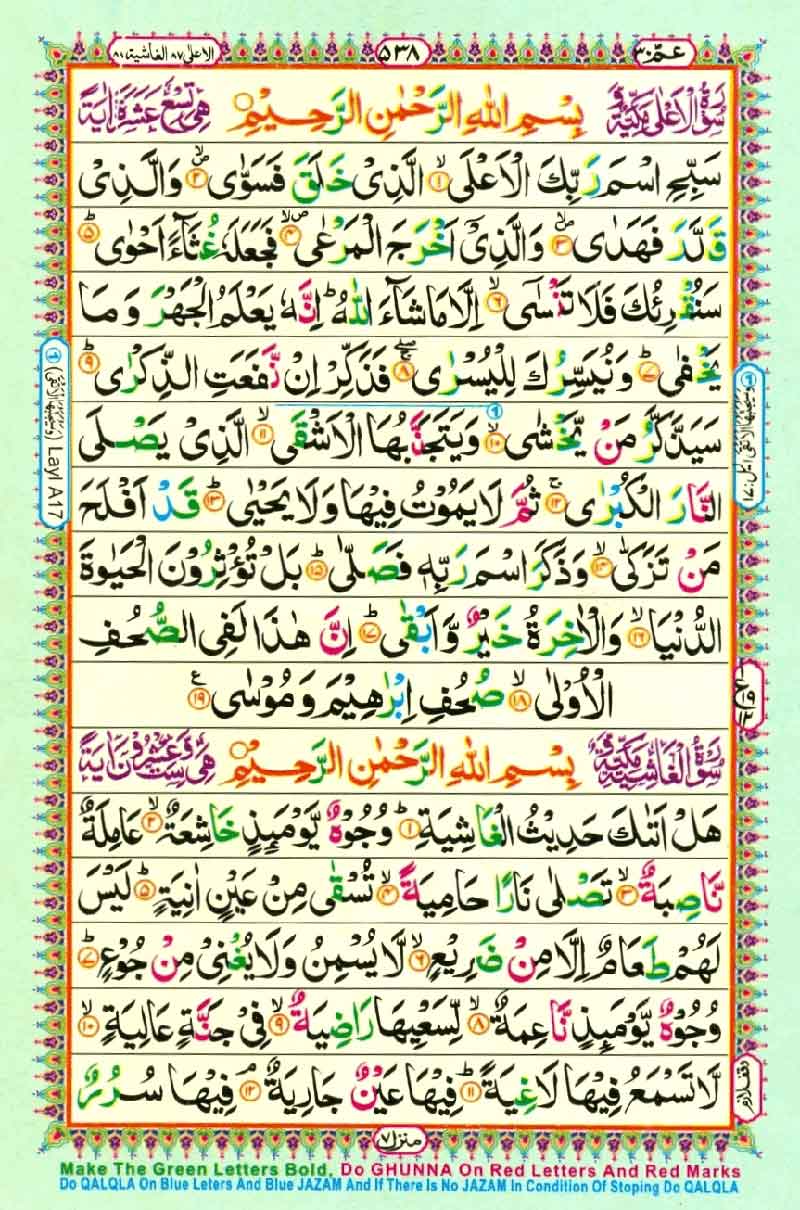 عم ۳۰ ۵۳۸ الاعلى ۸۷ الغاشية ۸۸
سورة الاعلى مكية بِسْمِ اللهِ الرَّحْمٰنِ الرَّحِيْمِ هى تسع عشرة اية
سَبِّحِ اسْمَ رَبِّكَ الْاَعْلَى ۙ﴿۱﴾ الَّذِىْ خَلَقَ فَسَوّٰى ۪ۙ﴿۲﴾ وَالَّذِىْ
قَدَّرَ فَهَدٰى ۪ۙ﴿۳﴾ وَالَّذِىْٓ اَخْرَجَ الْمَرْعٰى ۪ۙ﴿۴﴾ فَجَعَلَهٗ غُثَآءً اَحْوٰى ؕ﴿۵﴾
سَنُقْرِئُكَ فَلَا تَنْسٰٓى ۙ﴿۶﴾ اِلَّا مَا شَآءَ اللّٰهُ ؕ اِنَّهٗ يَعْلَمُ الْجَهْرَ وَ مَا
يَخْفٰى ؕ﴿۷﴾ وَنُيَسِّرُكَ لِلْيُسْرٰى ۚۖ﴿۸﴾ فَذَكِّرْ اِنْ نَّفَعَتِ الذِّكْرٰى ؕ﴿۹﴾
سَيَذَّكَّرُ مَنْ يَّخْشٰى ۙ﴿۱۰﴾ وَيَتَجَنَّبُهَا الْاَشْقَى ۙ﴿۱۱﴾ الَّذِىْ يَصْلَى
النَّارَ الْكُبْرٰى ۚ﴿۱۲﴾ ثُمَّ لَا يَمُوْتُ فِيْهَا وَلَا يَحْيٰى ؕ﴿۱۳﴾ قَدْ اَفْلَحَ
مَنْ تَزَكّٰى ۙ﴿۱۴﴾ وَذَكَرَ اسْمَ رَبِّهٖ فَصَلّٰى ؕ﴿۱۵﴾ بَلْ تُؤْثِرُوْنَ الْحَيٰوةَ
الدُّنْيَا ۖ﴿۱۶﴾ وَالْاٰخِرَةُ خَيْرٌ وَّاَبْقٰى ؕ﴿۱۷﴾ اِنَّ هٰذَا لَفِى الصُّحُفِ
الْاُوْلٰى ۙ﴿۱۸﴾ صُحُفِ اِبْرٰهِيْمَ وَ مُوْسٰى ﴿۱۹﴾ ع
سورة الغاشية مكية بِسْمِ اللهِ الرَّحْمٰنِ الرَّحِيْمِ هى ست وعشرون اية
هَلْ اَتٰٮكَ حَدِيْثُ الْغَاشِيَةِ ؕ﴿۱﴾ وُجُوْهٌ يَّوْمَئِذٍ خَاشِعَةٌ ۙ﴿۲﴾ عَامِلَةٌ
نَّاصِبَةٌ ۙ﴿۳﴾ تَصْلٰى نَارًا حَامِيَةً ۙ﴿۴﴾ تُسْقٰى مِنْ عَيْنٍ اٰنِيَةٍ ؕ﴿۵﴾ لَيْسَ
لَهُمْ طَعَامٌ اِلَّا مِنْ ضَرِيْعٍ ۙ﴿۶﴾ لَّا يُسْمِنُ وَلَا يُغْنِىْ مِنْ جُوْعٍ ؕ﴿۷﴾
وُجُوْهٌ يَّوْمَئِذٍ نَّاعِمَةٌ ۙ﴿۸﴾ لِّسَعْيِهَا رَاضِيَةٌ ۙ﴿۹﴾ فِىْ جَنَّةٍ عَالِيَةٍ ۙ﴿۱۰﴾
لَّا تَسْمَعُ فِيْهَا لَاغِيَةً ؕ﴿۱۱﴾ فِيْهَا عَيْنٌ جَارِيَةٌ ۘ﴿۱۲﴾ فِيْهَا سُرُرٌ
وقف لازم
Layl A17
منزل ۷
Make The Green Letters Bold, Do GHUNNA On Red Letters And Red Marks
Do QALQLA On Blue Leters And Blue JAZAM And If There Is No JAZAM In Condition Of Stoping Do QALQLA